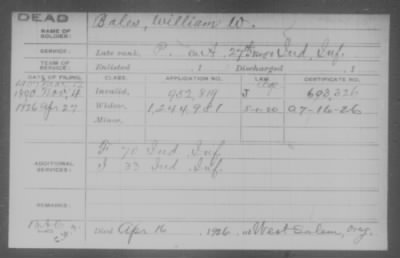 DEAD
NAME OF SOLDIER:
Bales, William W.
SERVICE:
Late rank, P. Co. A. 27 Ind. Inf.
TERM OF SERVICE:
Enlisted , 1 Discharged , 1
DATE OF FILING. CLASS. APPLICATION NO. LAW. CERTIFICATE NO.
1890 Nov. 4 Invalid, 952,819 693,326
1926 Apr 27 Widow, 1,244,981 5-1-20 A 7-16-26
Minor,
ADDITIONAL SERVICES:
F 70 Ind Inf.
I 33 Ind Inf.
REMARKS:
Died Apr 16, 1926, at West Salem, Oreg.